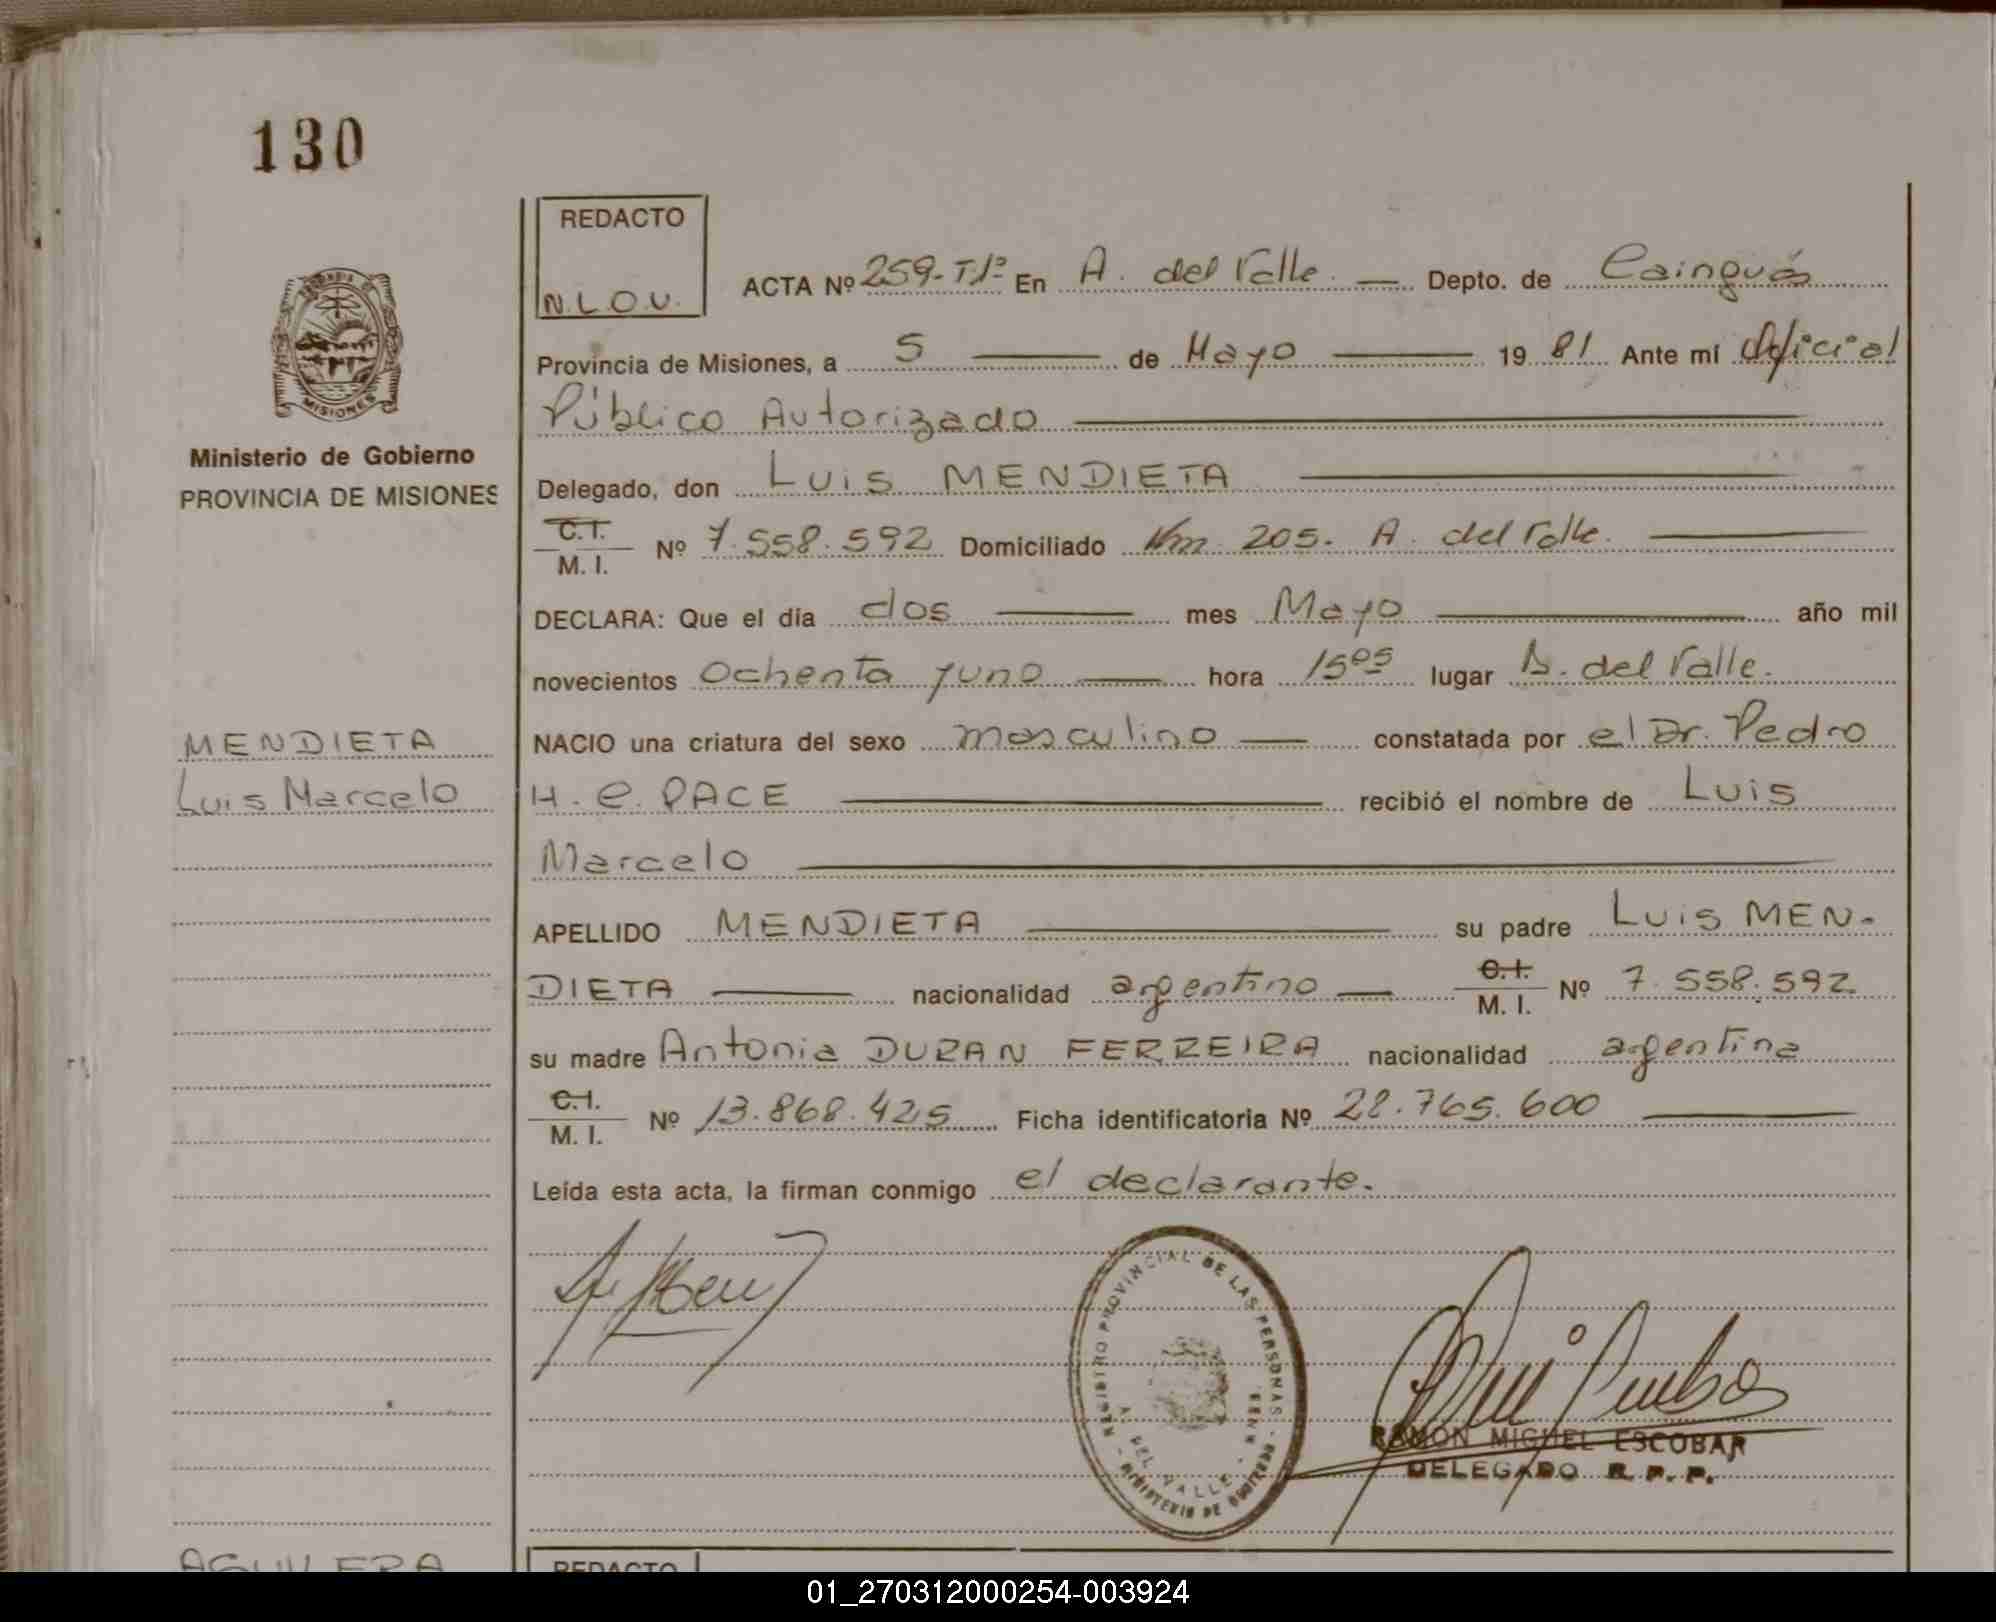 130
REDACTO
N.L.O.V.
ACTA Nº 259-Tº1º En A. del Valle. — Depto. de Cainguás
Provincia de Misiones, a 5 — de Mayo — 19 81 Ante mí Oficial
Público Autorizado
MISIONES
Ministerio de Gobierno
PROVINCIA DE MISIONES
Delegado, don Luis MENDIETA
C.I.
M. I. Nº 7.558.592 Domiciliado Km. 205. A. del Valle.
DECLARA: Que el día dos — mes Mayo — año mil
novecientos ochenta y uno — hora 15⁰⁵ lugar A. del Valle.
MENDIETA
Luis Marcelo
NACIO una criatura del sexo masculino — constatada por el Dr. Pedro
H. C. PACE — recibió el nombre de Luis
Marcelo
APELLIDO MENDIETA — su padre Luis MEN-
DIETA — nacionalidad argentino — C.I.
M. I. Nº 7.558.592.
su madre Antonia DURAN FERREIRA nacionalidad argentina
C.I.
M. I. Nº 13.868.425 Ficha identificatoria Nº 22.765.600
Leída esta acta, la firman conmigo el declarante.
REGISTRO PROVINCIAL DE LAS PERSONAS - MINISTERIO DE GOBIERNO
A. DEL VALLE - MNES.
RAMON MIGUEL ESCOBAR
DELEGADO R. P. P.
AGUILERA
REDACTO
01_270312000254-003924